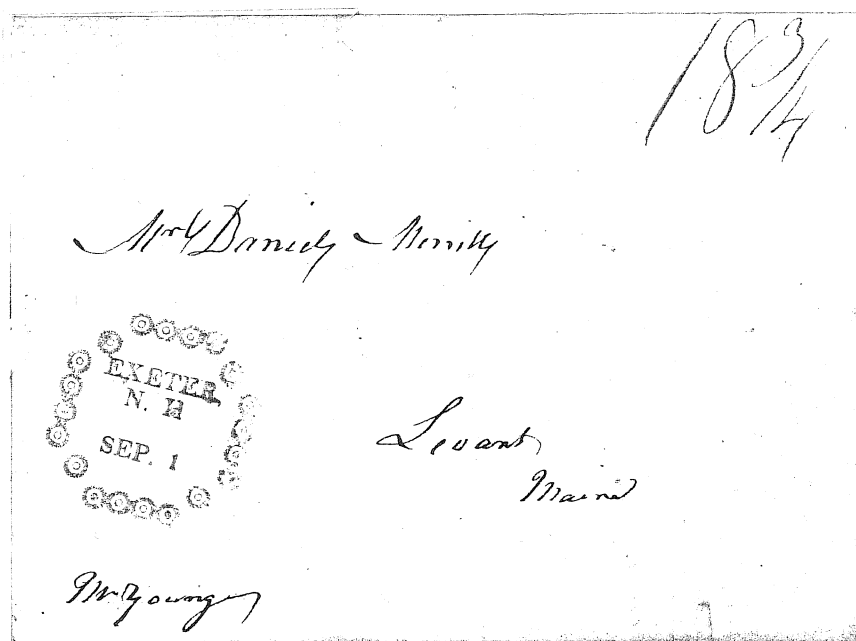 18 3/4
Mr Daniel Merrill
EXETER,
N. H
SEP. 1
Levant
Maine
Mr Young